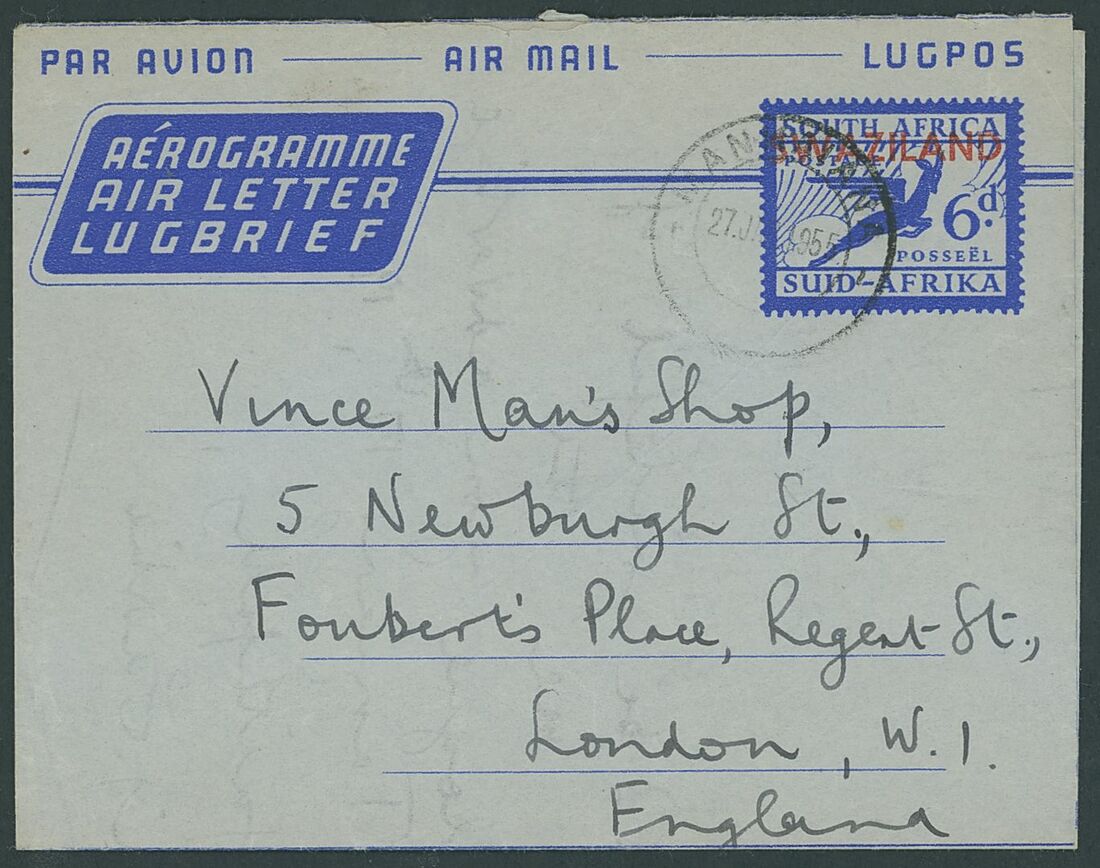 PAR AVION AIR MAIL LUGPOS
AÉROGRAMME
AIR LETTER
LUGBRIEF
SOUTH AFRICA
SWAZILAND
6d.
POSSEËL
SUID-AFRIKA
27.J 1955
Vince Man's Shop,
5 Newburgh St.,
Foubert's Place, Regent St.,
London, W.1.
England